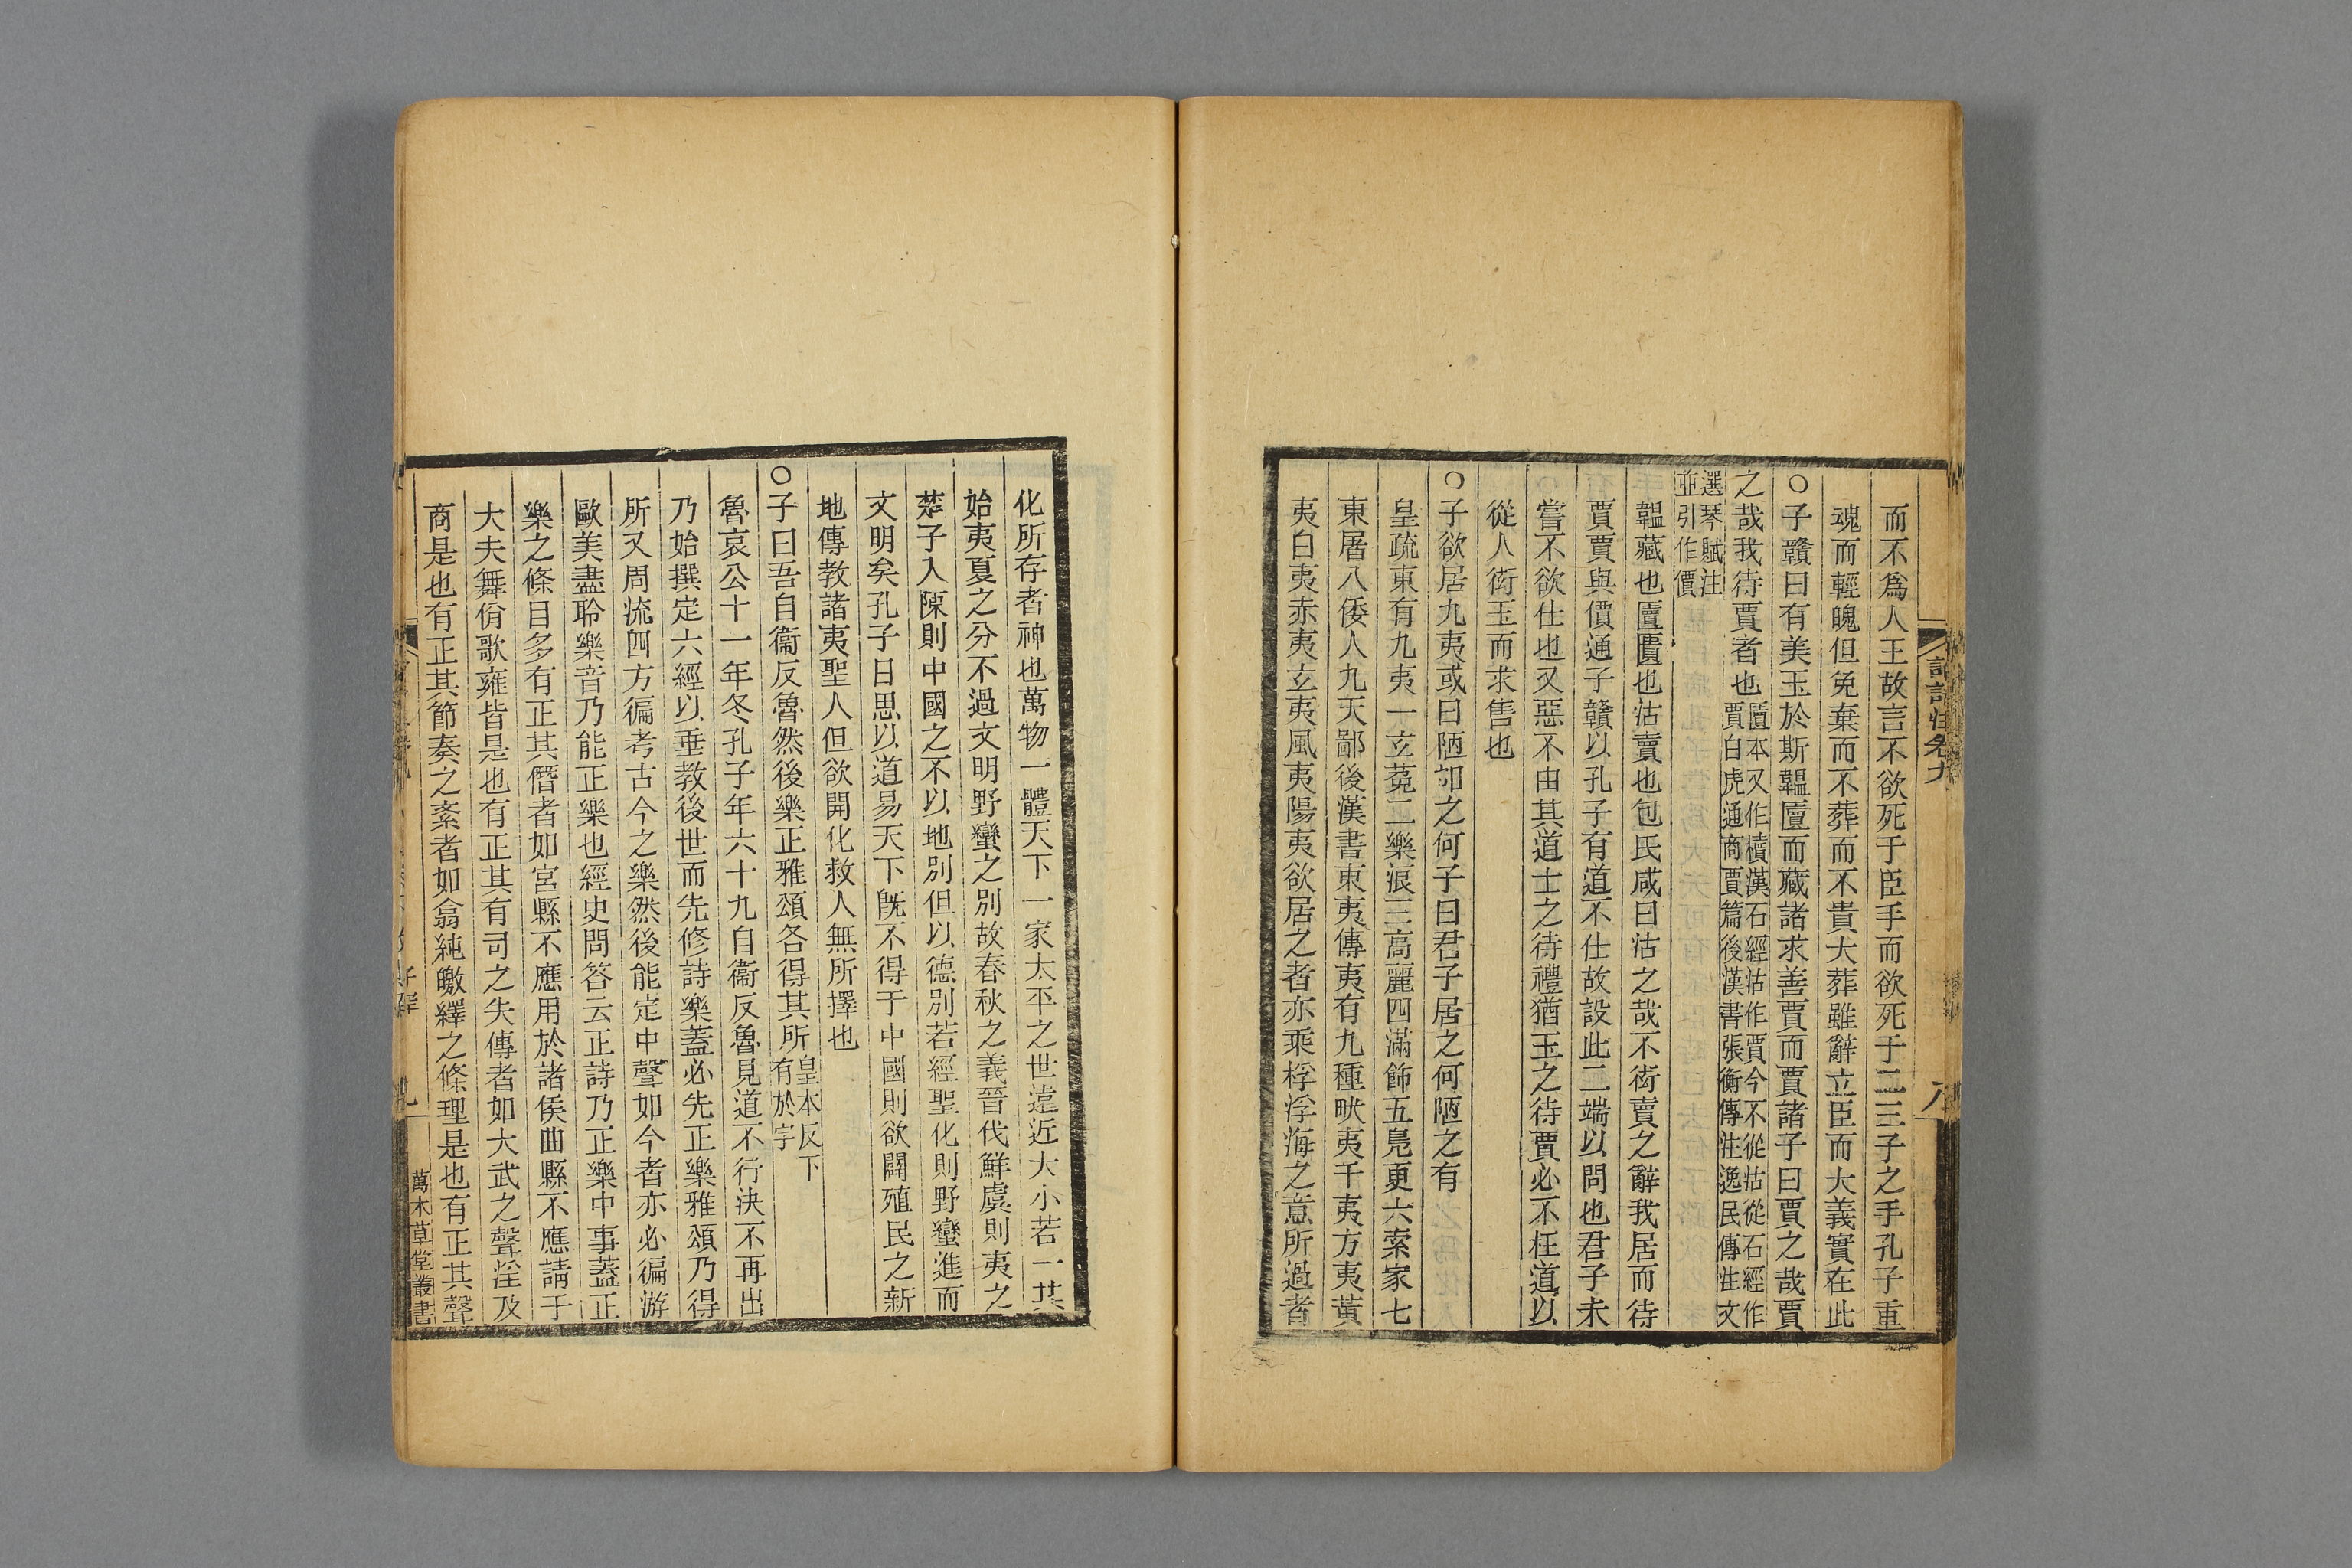 而不爲人王故言不欲死于臣手而欲死于二三子之手孔子重
魂而輕魄但免棄而不葬而不貴大葬雖辭立臣而大義實在此
○子贛曰有美玉於斯韞匵而藏諸求善賈而賈諸子曰賈之哉賈
之哉我待賈者也匵本又作櫝漢石經沽作賈今不從沽從石經作
賈白虎通商賈篇後漢書張衡傳注逸民傳注文
選琴賦注
並引作價
韞藏也匵匱也沽賣也包氏咸曰沽之哉不衒賣之辭我居而待
賈賈與價通子贛以孔子有道不仕故設此二端以問也君子未
嘗不欲仕也又惡不由其道士之待禮猶玉之待賈必不枉道以
從人衒玉而求售也
○子欲居九夷或曰陋如之何子曰君子居之何陋之有
皇疏東有九夷一玄菟二樂浪三高麗四滿飾五鳧更六索家七
東屠八倭人九天鄙後漢書東夷傳夷有九種畎夷干夷方夷黃
夷白夷赤夷玄夷風夷陽夷欲居之者亦乘桴浮海之意所過者
化所存者神也萬物一體天下一家太平之世遠近大小若一其
始夷夏之分不過文明野蠻之別故春秋之義晉伐鮮虞則夷之
楚子入陳則中國之不以地別但以德別若經聖化則野蠻進而
文明矣孔子日思以道易天下既不得于中國則欲闢殖民之新
地傳教諸夷聖人但欲開化救人無所擇也
○子曰吾自衞反魯然後樂正雅頌各得其所皇本反下
有於字
魯哀公十一年冬孔子年六十九自衞反魯見道不行決不再出
乃始撰定六經以垂教後世而先修詩樂蓋必先正樂雅頌乃得
所又周流四方徧考古今之樂然後能定中聲如今者亦必徧游
歐美盡聆樂音乃能正樂也經史問答云正詩乃正樂中事蓋正
樂之條目多有正其僭者如宮縣不應用於諸侯曲縣不應請于
大夫舞佾歌雍皆是也有正其有司之失傳者如大武之聲淫及
商是也有正其節奏之紊者如翕純皦繹之條理是也有正其聲
萬木草堂叢書